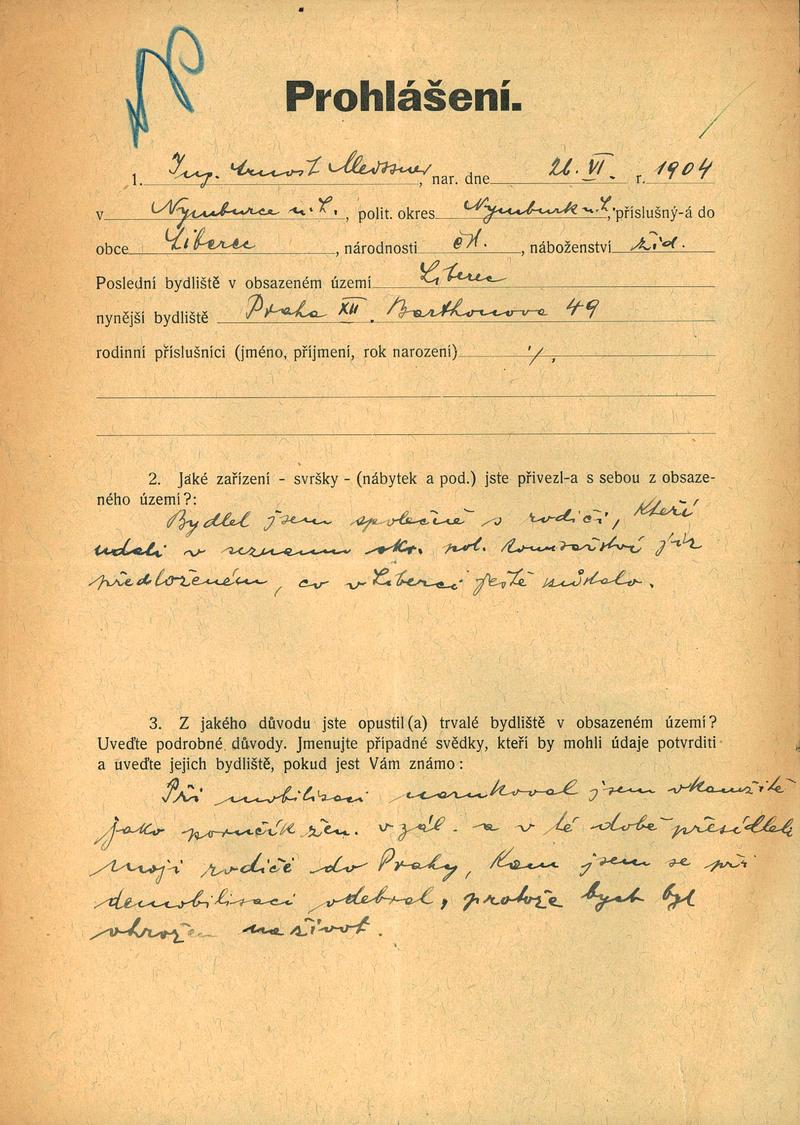 Prohlášení.
1. Ing. Arnošt Meissner, nar. dne 26. VI. r. 1904
v Nymburce n. L., polit. okres Nymburk n. L., příslušný-á do
obce Liberec, národnosti čsl., náboženství žid.
Poslední bydliště v obsazeném území Liberec
nynější bydliště Praha XII. Barthonova 49
rodinní příslušníci (jméno, příjmení, rok narození) ./.
2. Jaké zařízení - svršky - (nábytek a pod.) jste přivezl-a s sebou z obsaze-
ného území?:
Bydlel jsem společně s rodiči, kteří
udali v seznamu okr. pol. komisařství již
předloženém, co v Liberci ještě zůstalo.
3. Z jakého důvodu jste opustil(a) trvalé bydliště v obsazeném území?
Uveďte podrobné důvody. Jmenujte případné svědky, kteří by mohli údaje potvrditi
a uveďte jejich bydliště, pokud jest Vám známo:
Při mobilisaci narukoval jsem okamžitě
jako poručík žen. v zál. a v té době přesídleli
moji rodiče do Prahy, kam jsem se při
demobilisaci odebral, protože bych byl
ohrožen na život.